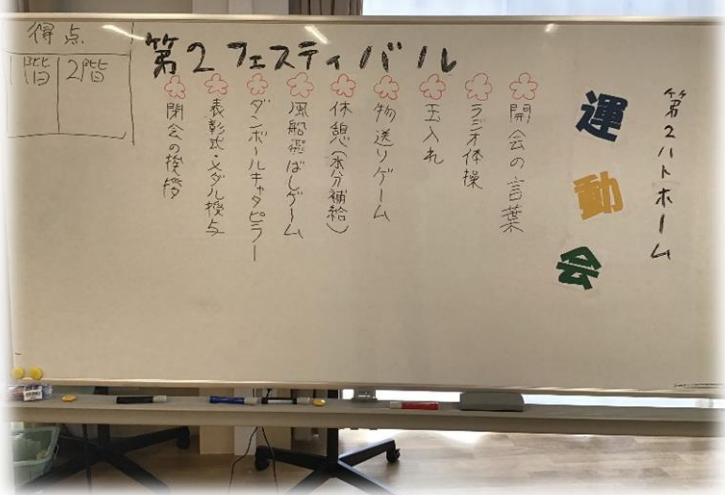 第2フェスティバル
第2ハトホーム
運動会
開会の言葉
ラジオ体操
玉入れ
物送りゲーム
休憩(水分補給)
風船飛ばしゲーム
ダンボールキャタピラー
表彰式・メダル授与
閉会の挨拶
得点
1階 2階